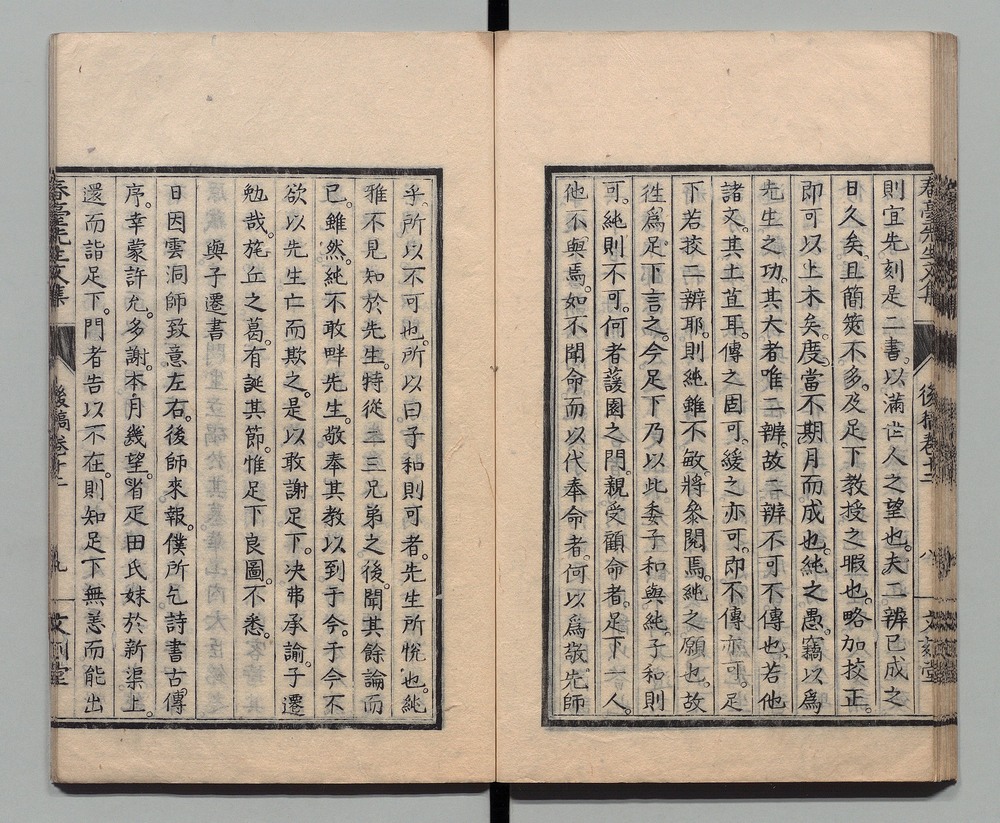 春臺先生文集 後稿卷十二 八 文刻堂
則宜先刻是二書。以滿世人之望也。夫二辨已成之
日久矣。且簡筴不多。及足下教授之暇也。略加挍正。
即可以上木矣。度當不期月而成也。純之愚。竊以爲
先生之功。其大者唯二辨。故二辨不可不傳也。若他
諸文。其土苴耳。傳之固可。緩之亦可。即不傳亦可。足
下若挍二辨耶。則純雖不敏。將參閱焉。純之願也。故
徃爲足下言之。今足下乃以此委子和與純。子和則
可。純則不可。何者。蘐園之門。親受顧命者。足下一人。
他不與焉。如不聞命而以代奉命者。何以爲敬先師
乎。所以不可也。所以曰子和則可者。先生所悅也。純
雅不見知於先生。特從二三兄弟之後。聞其餘論而
已。雖然。純不敢畔先生。敬奉其教以到于今。于今不
欲以先生亡而欺之。是以敢謝足下。决弗承諭。子遷
勉哉。旄丘之葛。有誕其節。惟足下良圖。不悉。
與子遷書
日因雲洞師致意左右。後師來報。僕所乞詩書古傳
序。幸蒙許允。多謝。本月幾望。省疋田氏妹於新渠上。
還而詣足下。門者告以不在。則知足下無恙而能出
春臺先生文集 後稿卷十二 九 文刻堂